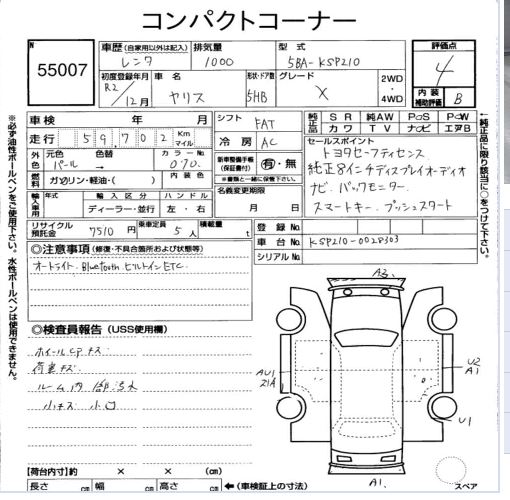 コンパクトコーナー
No 55007
車歴 (自家用以外は記入) レンタ
排気量 1000
型式 5BA-KSP210
評価点 4
初度登録年月 R2/12月
車名 ヤリス
形状・ドア数 5HB
グレード X
2WD・4WD
内装補助評価 B
車検 年 月
シフト FAT
純正品 SR 純AW PS PW
カワ TV ナビ エアB
走行 59,702 Km マイル
冷房 AC
セールスポイント
トヨタセーフティセンス
純正8インチディスプレイオーディオ
ナビ. バックモニター.
スマートキー. プッシュスタート
外色 元色 パール → 色替
カラーNo 070.
新車整備手帳(保証書付) 有・無
※書類と一緒に保管下さい。
燃料 ガソリン・軽油・( )
内装色
名義変更期限 月 日
輸入車用 年式 輸入 ディーラー・並行
ハンドル 左・右
リサイクル預託金 7510円
乗車定員 5人
積載量 t
登録No
車台No KSP210-0028303
シリアルNo
◎注意事項 (修復・不具合箇所および状態等)
オートライト. Bluetooth ビルトインETC.
◎検査員報告 (USS使用欄)
ホイールCPキズ
荷室キズ
ルーム内 汚れ
小キズ 小凹
A3.
AU1
21A
U2
A1
U1
A1.
スペア
【荷台内寸】約 × × (cm)
長さ cm 幅 cm 高さ cm ←(車検証上の寸法)
※必ず油性ボールペンをご使用下さい。水性ボールペンは使用できません。
←純正品に限り該当に○をつけて下さい。